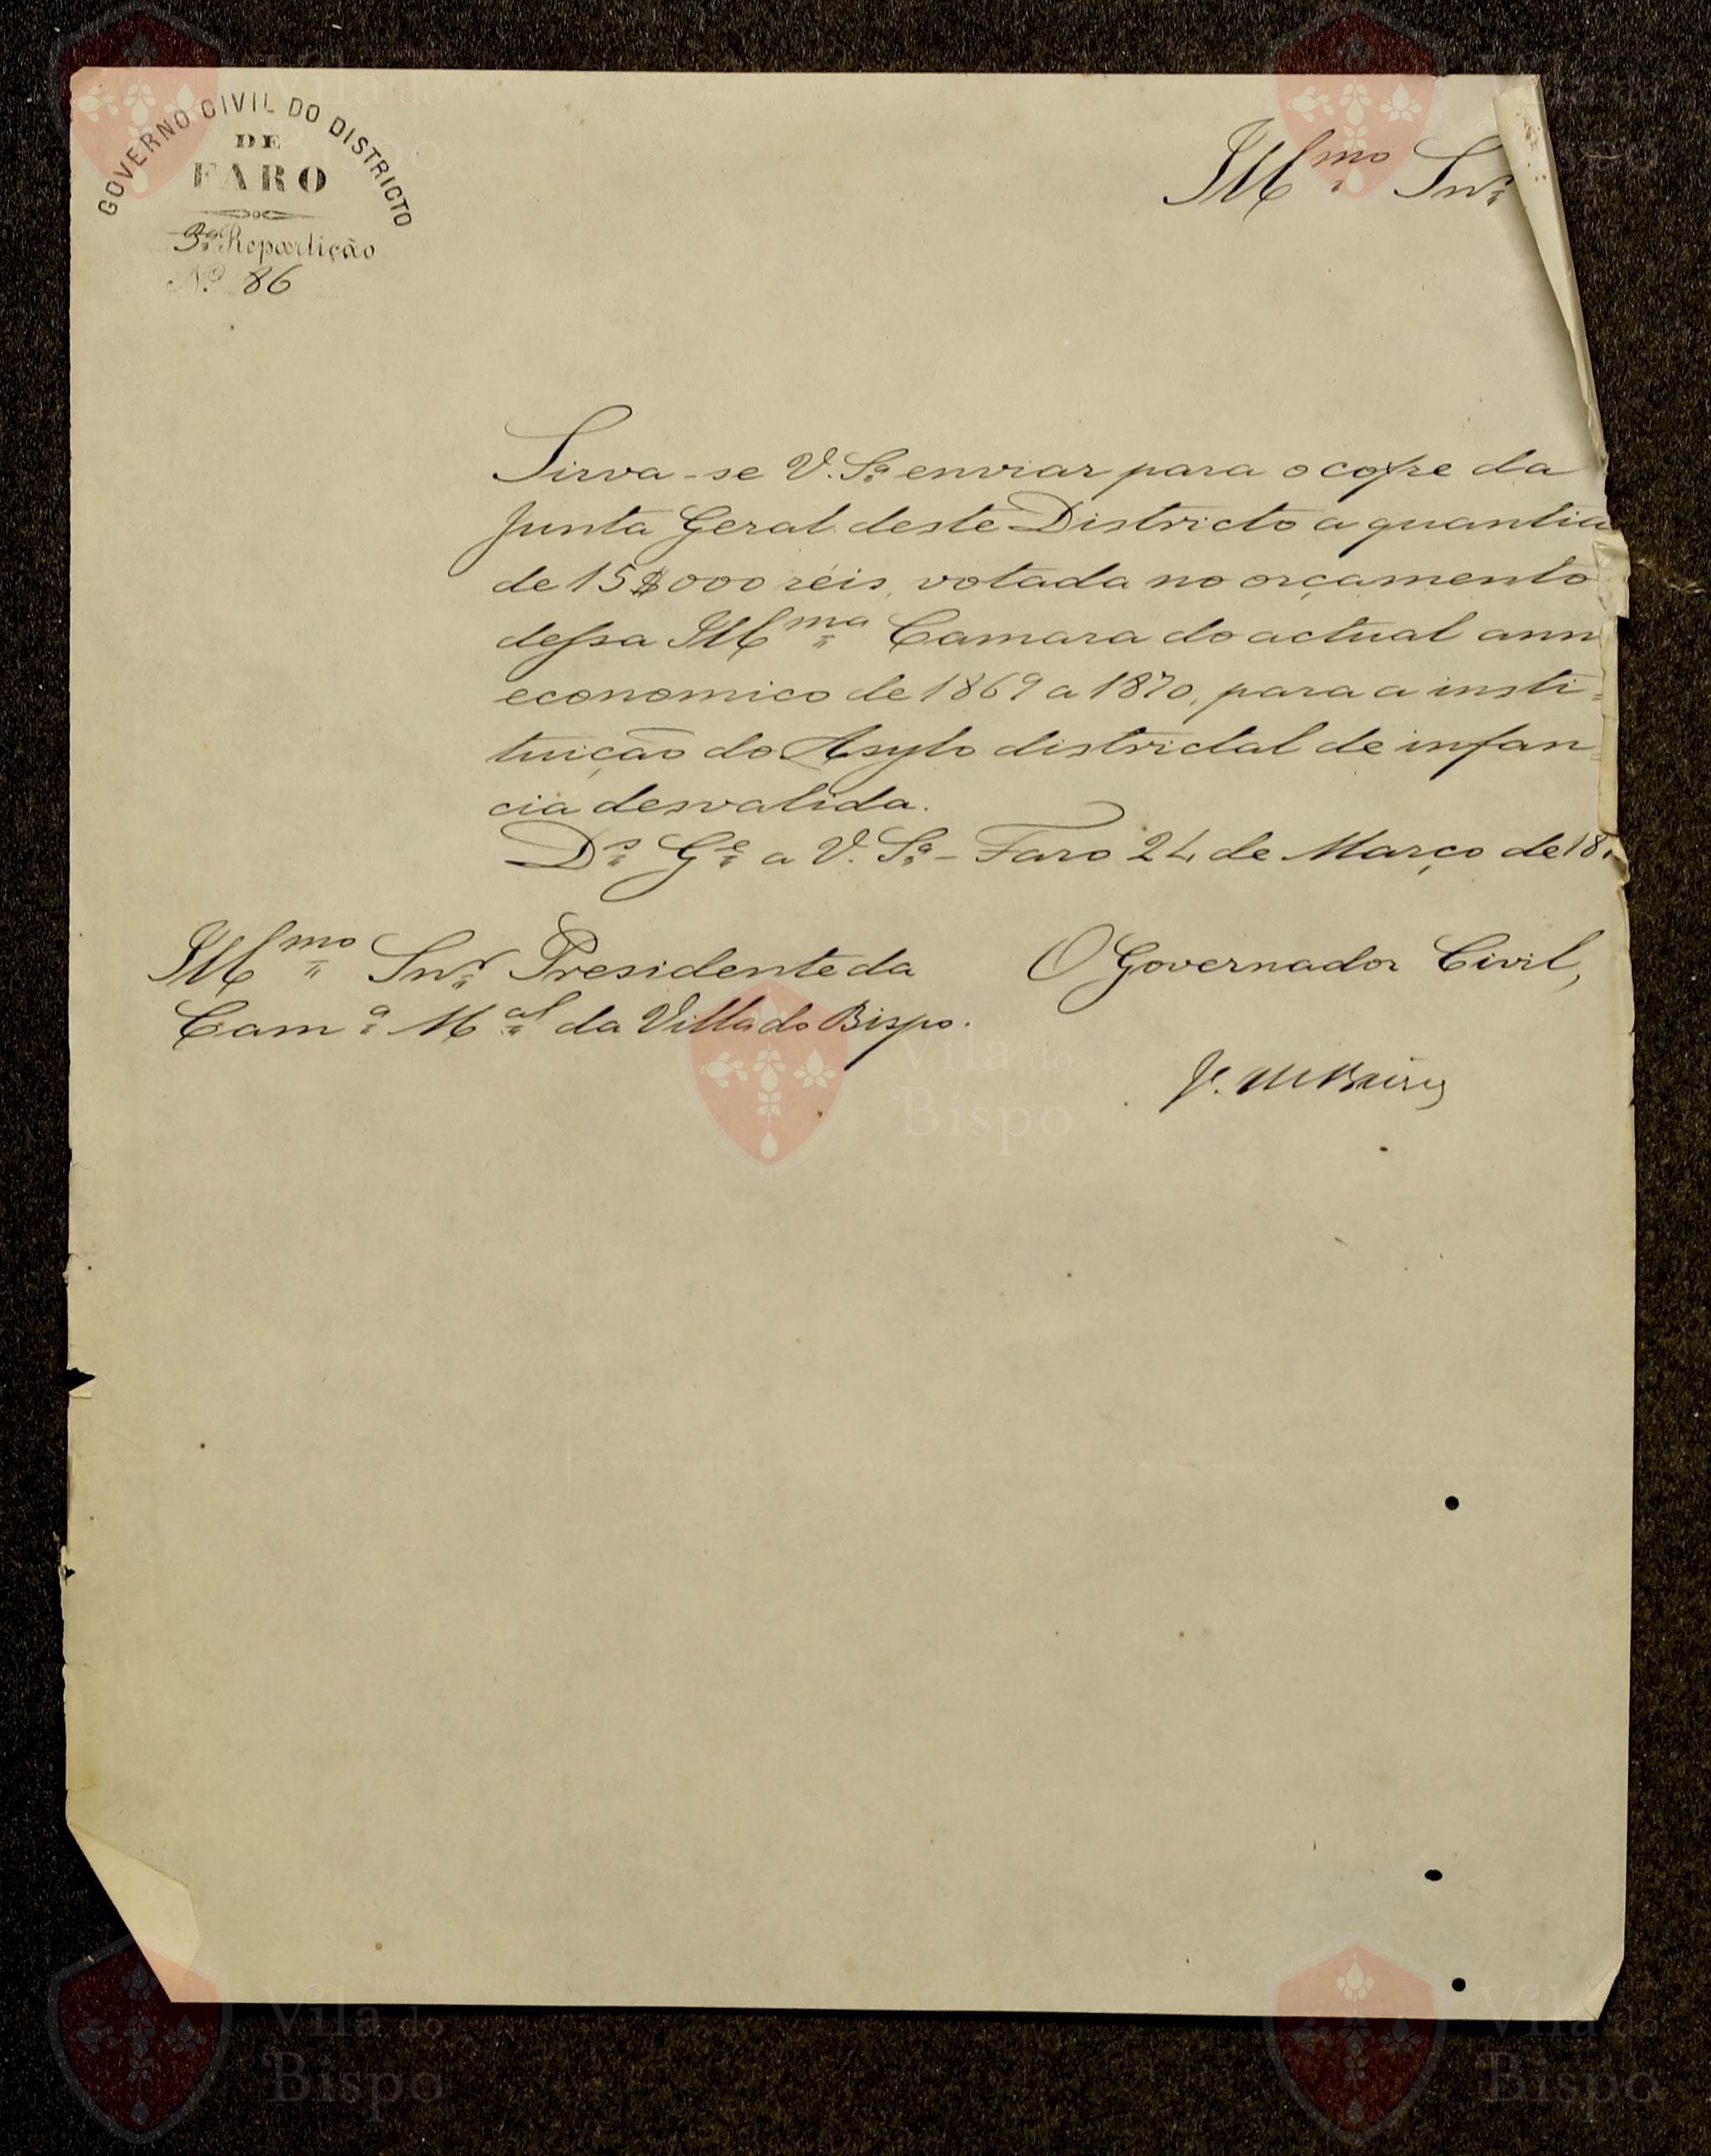 GOVERNO CIVIL DO DISTRICTO
DE
FARO
3ª Repartição
N.º 86
Illmo Snr
Sirva-se V. Sª enviar para o cofre da
Junta Geral deste Districto a quantia
de 15$000 réis, votada no orçamento
dessa Illma Camara do actual ann
economico de 1869 a 1870, para a insti=
tuição do Asylo districtal de infan=
cia desvalida.
Ds Ge a V. Sª - Faro 24 de Março de 18
Illmo Snr Presidente da
Camª Mal da Villa do Bispo.
O Governador Civil,
Vila do
Bispo